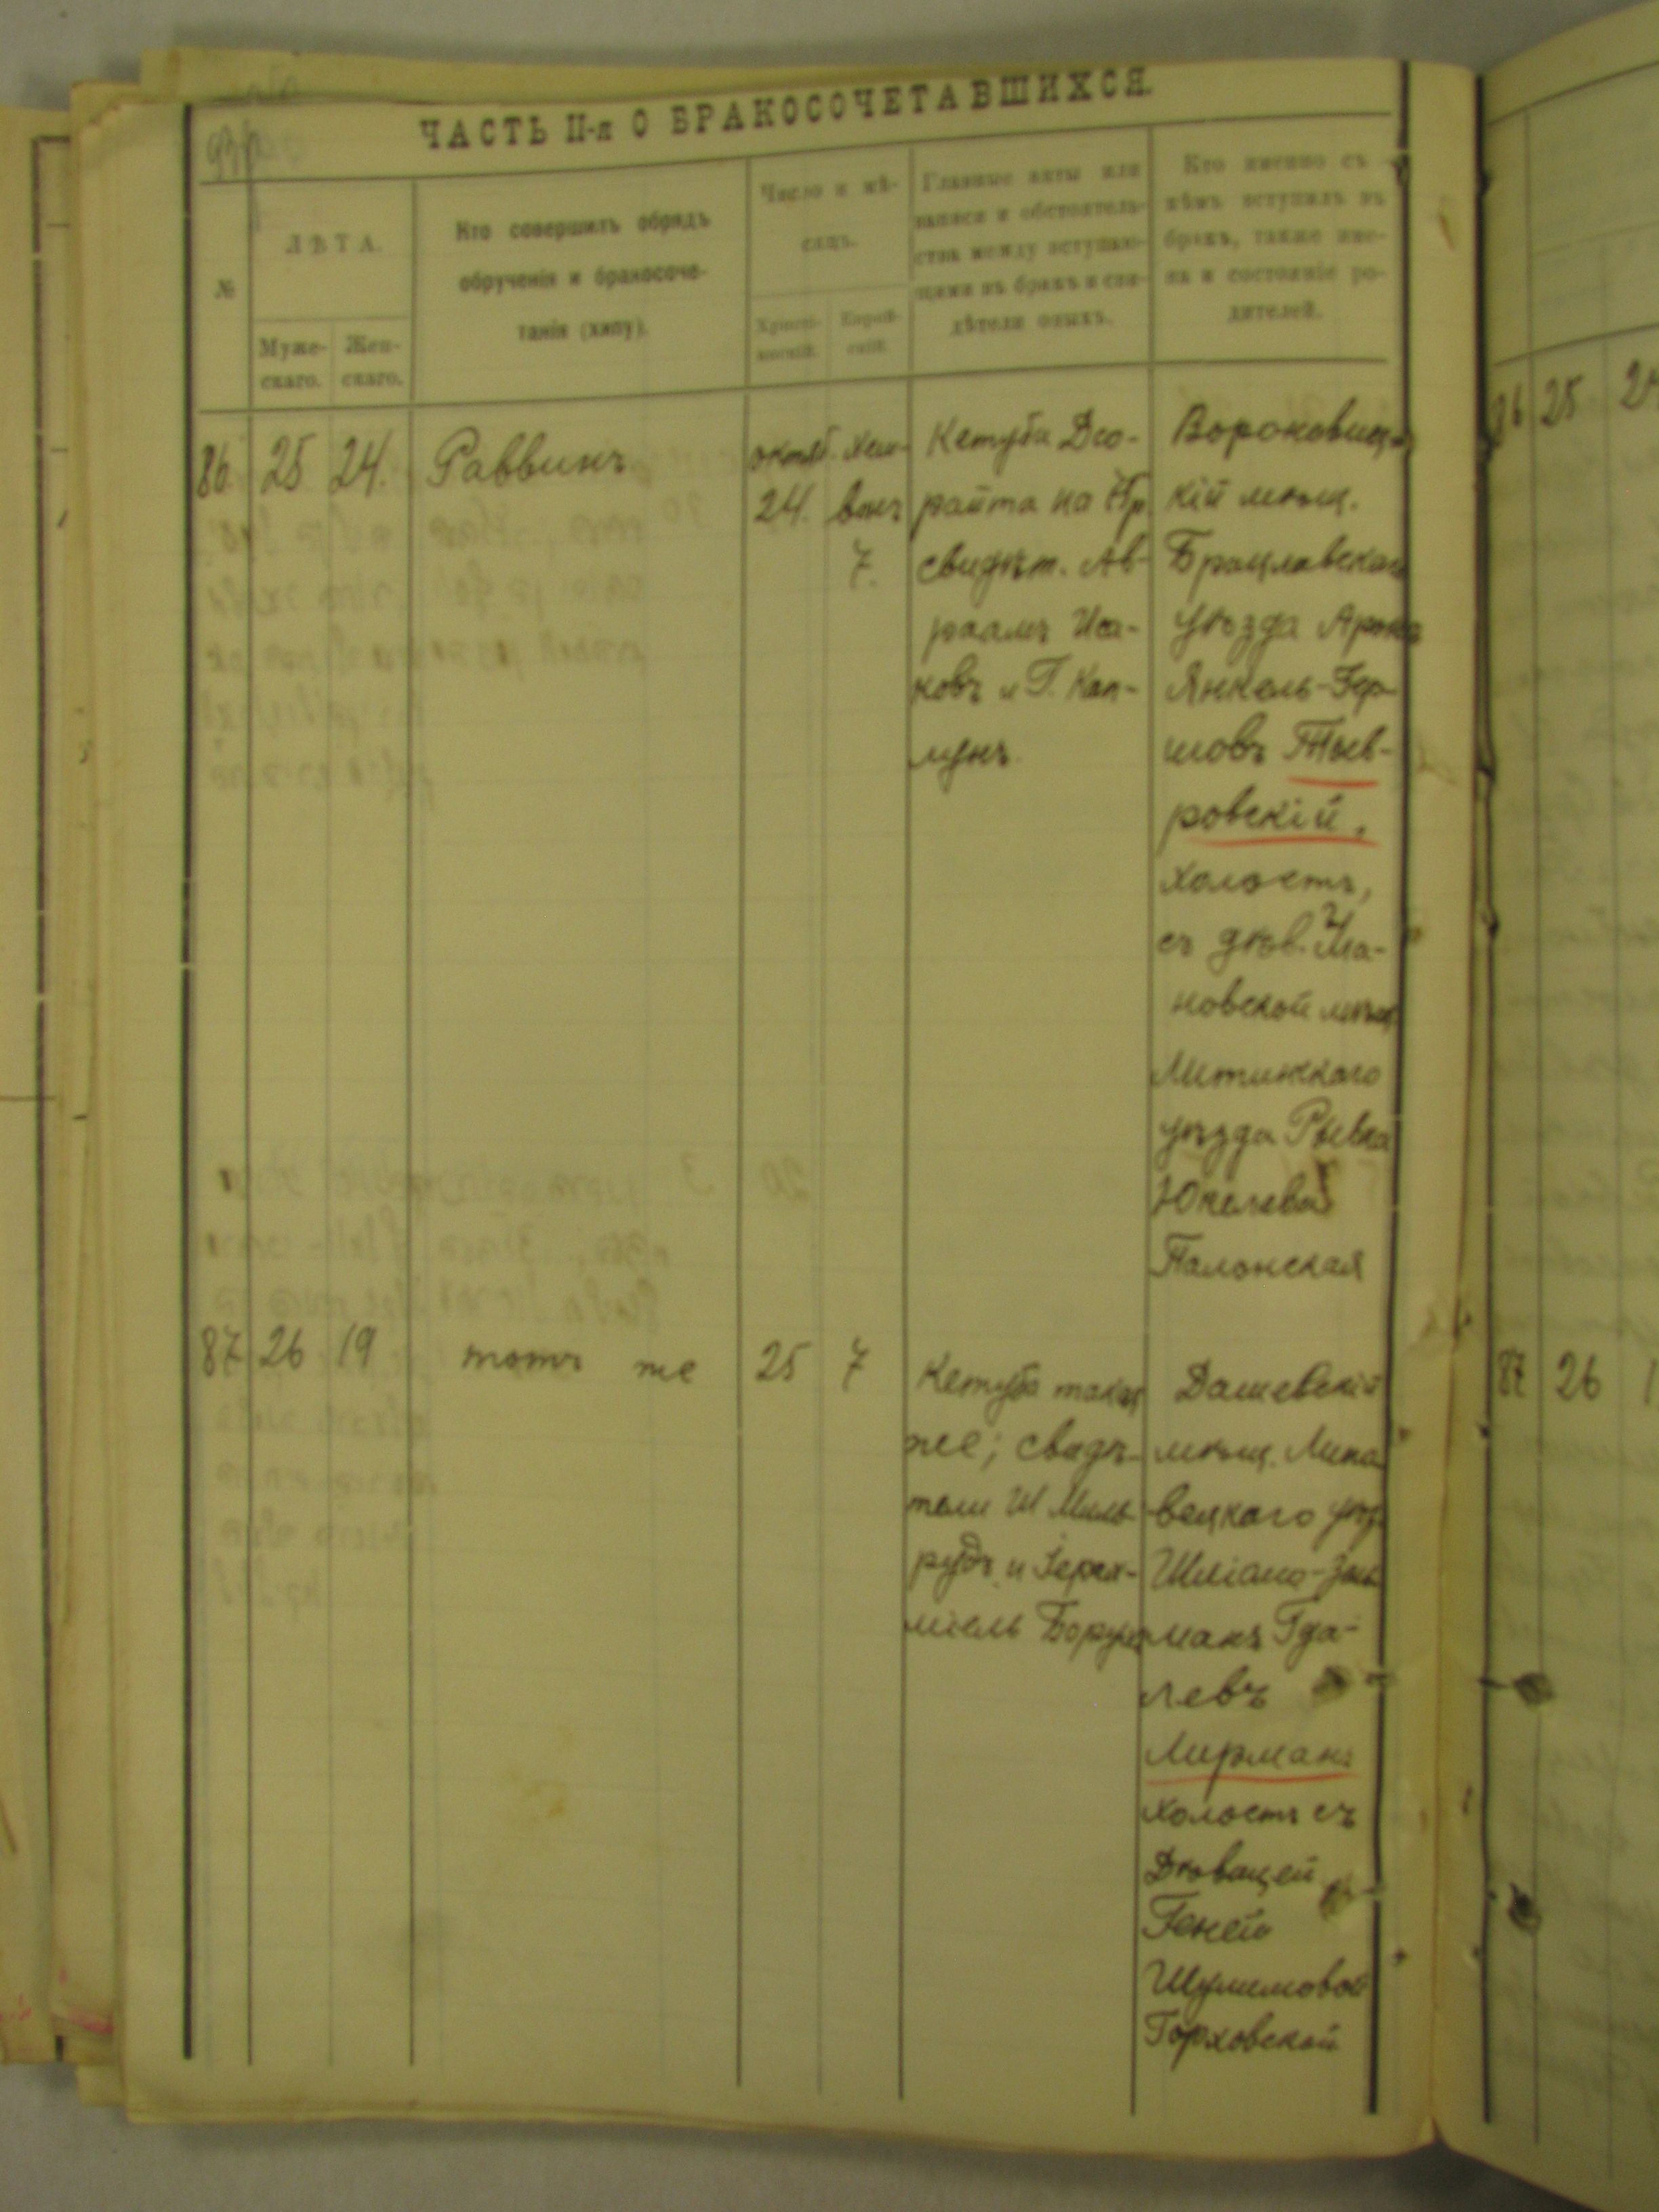 ЧАСТЬ II-я О БРАКОСОЧЕТАВШИХСЯ.
№
ЛѢТА.
Муже-
скаго.
Жен-
скаго.
Кто совершитъ обрядъ
обрученія и бракосоче-
танія (хипу).
Число и мѣ-
сяцъ.
Христі-
анскій.
Еврей-
скій.
Главные акты или
записи и обстоятель-
ства между вступаю-
щими въ бракъ и сви-
дѣтели оныхъ.
Кто именно съ
кѣмъ вступилъ въ
бракъ, также име-
на и состояніе ро-
дителей.
86
25
24.
Раввинъ
октяб.
24.
Хеш-
вонъ
7.
Кетуба Део-
райта на
свидѣт. Ав-
раамъ Иса-
ковъ и Г. Кап-
лунъ.
Вороновиц-
кій мѣщ.
Брацлавскаго
уѣзда Аронъ
Янкель-Гер-
шовъ Тыв-
ровскій,
холостъ,
съ дѣв.
новской мѣщ
Литинскаго
уѣзда Ривка
Юкелева
Полонская
87
26
19
тотъ же
25
7
Кетуба такая
же; свидѣ-
тели Ш Миль-
рудъ и Іерах-
міель
Дашевскій
мѣщ. Липо
вецкаго уѣз.
Шліомо-Зись
манъ Гда-
левъ
Лирманъ
холостъ съ
Дѣвицей
Геней
Шулимовой
Горховской
86 25
87 26